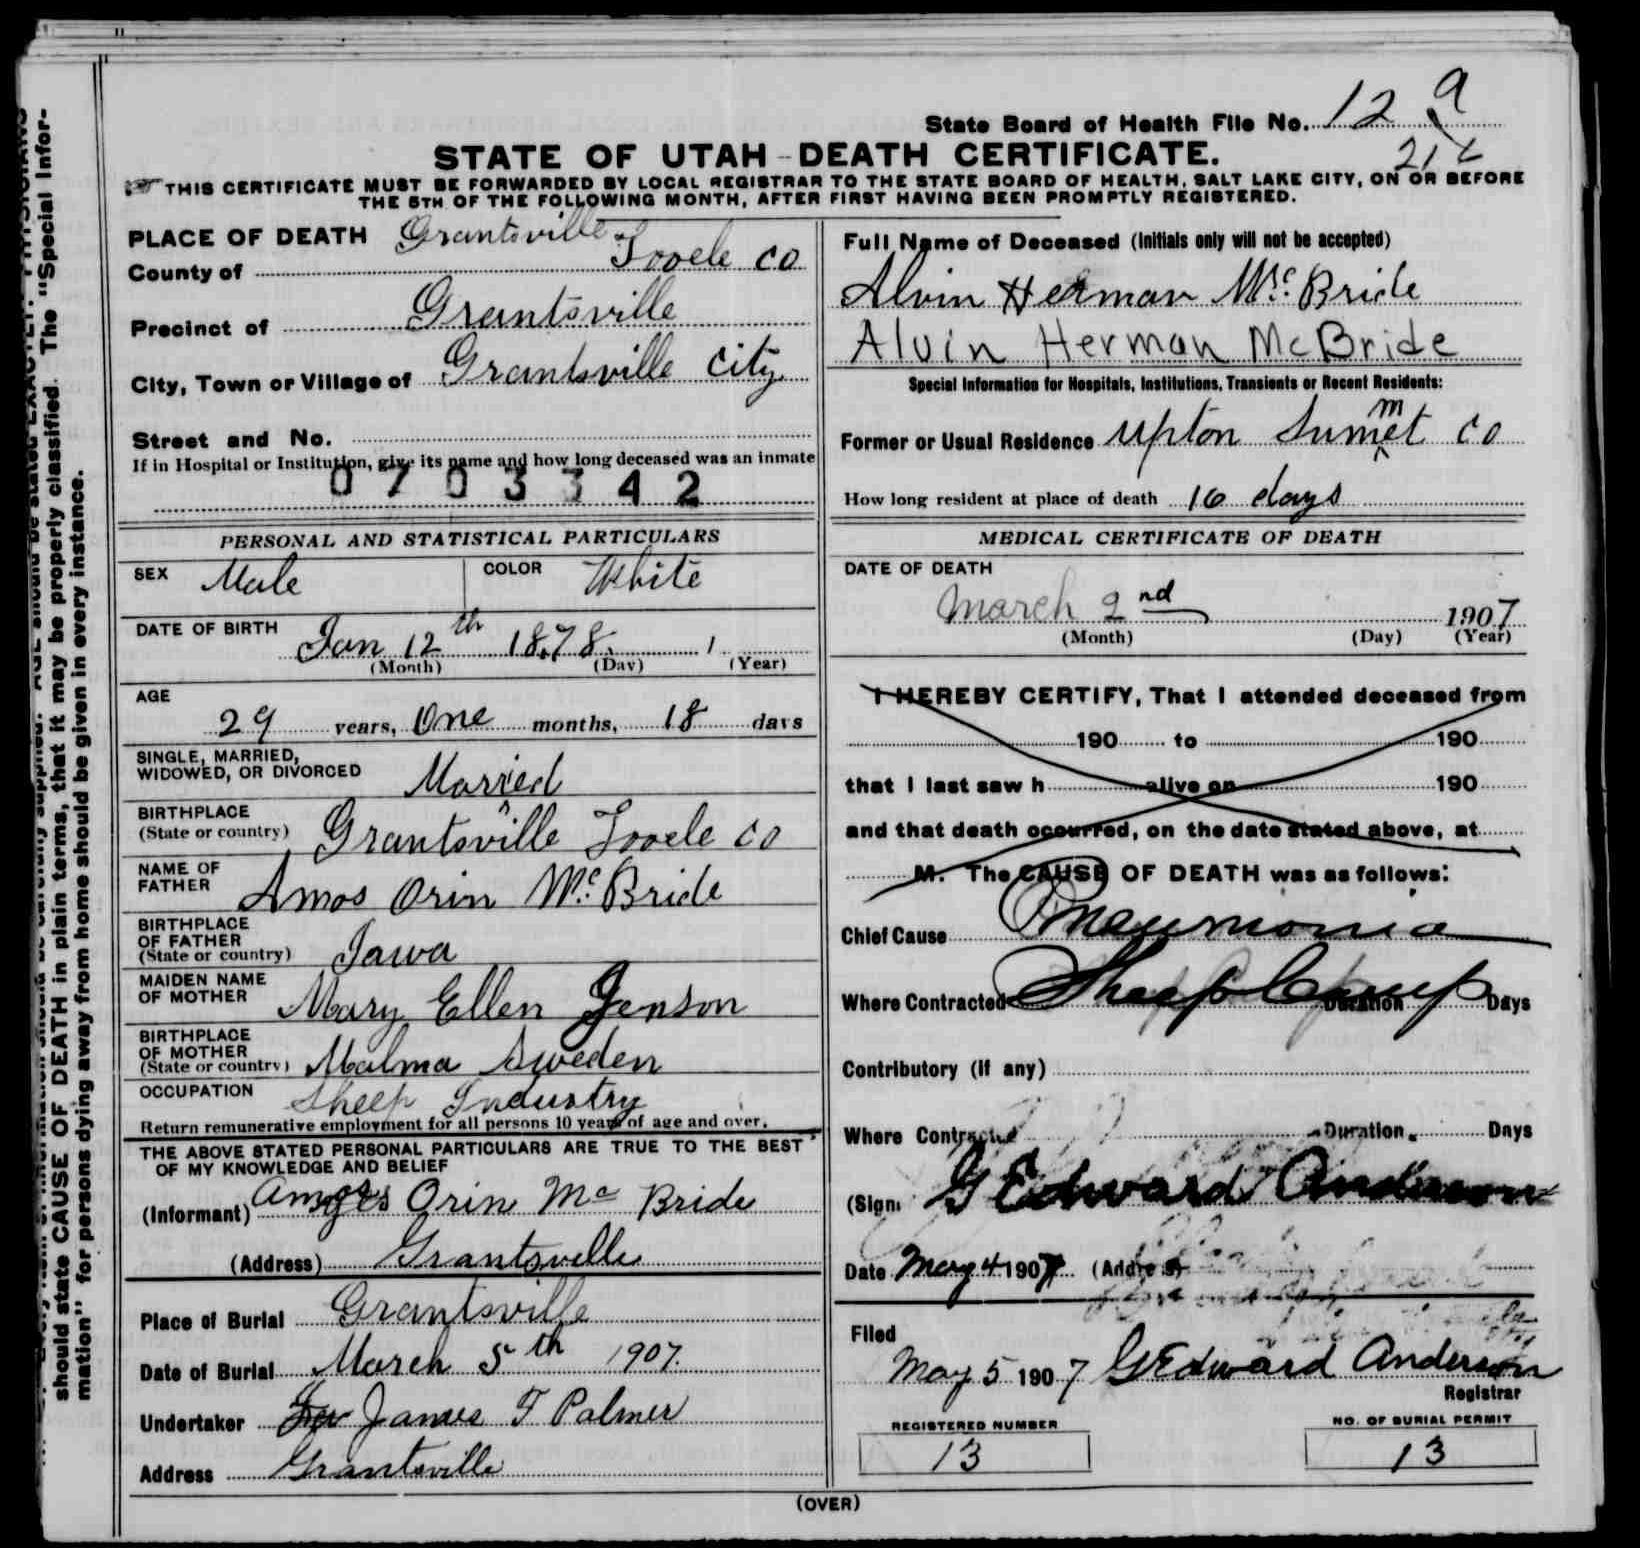 State Board of Health File No. 12 a
STATE OF UTAH - DEATH CERTIFICATE.
THIS CERTIFICATE MUST BE FORWARDED BY LOCAL REGISTRAR TO THE STATE BOARD OF HEALTH, SALT LAKE CITY, ON OR BEFORE
THE 5TH OF THE FOLLOWING MONTH, AFTER FIRST HAVING BEEN PROMPTLY REGISTERED.
PLACE OF DEATH Grantsville
County of Tooele Co
Precinct of Grantsville
City, Town or Village of Grantsville City
Street and No.
If in Hospital or Institution, give its name and how long deceased was an inmate
0703342
PERSONAL AND STATISTICAL PARTICULARS
SEX Male COLOR White
DATE OF BIRTH Jan 12th 1878. 1
(Month) (Day) (Year)
AGE
29 years, One months, 18 days
SINGLE, MARRIED,
WIDOWED, OR DIVORCED Married
BIRTHPLACE
(State or country) Grantsville Tooele Co
NAME OF
FATHER Amos Orin Mc.Bride
BIRTHPLACE
OF FATHER
(State or country) Iawa
MAIDEN NAME
OF MOTHER Mary Ellen Jenson
BIRTHPLACE
OF MOTHER
(State or country) Malma Sweden
OCCUPATION Sheep Industry
Return remunerative employment for all persons 10 years of age and over.
THE ABOVE STATED PERSONAL PARTICULARS ARE TRUE TO THE BEST
OF MY KNOWLEDGE AND BELIEF
(Informant) Amos Orin Mc Bride
(Address) Grantsville
Place of Burial Grantsville
Date of Burial March 5th 1907.
Undertaker James F Palmer
Address Grantsville
Full Name of Deceased (Initials only will not be accepted)
Alvin Herman Mc.Bride
Alvin Herman McBride
Special Information for Hospitals, Institutions, Transients or Recent Residents:
Former or Usual Residence Upton Summet Co
How long resident at place of death 16 days
MEDICAL CERTIFICATE OF DEATH
DATE OF DEATH
March 2nd 1907
(Month) (Day) (Year)
I HEREBY CERTIFY, That I attended deceased from
190 to 190
that I last saw h alive on 190
and that death occurred, on the date stated above, at
M. The CAUSE OF DEATH was as follows:
Chief Cause Pneumonia
Where Contracted Sheep Camp Duration Days
Contributory (If any)
Where Contracted Duration Days
(Sign G Edward Anderson
Date May 4 1907 (Address)
Filed
May 5 1907 G Edward Anderson
Registrar
REGISTERED NUMBER
13
NO. OF BURIAL PERMIT
13
(OVER)
should state CAUSE OF DEATH in plain terms, that it may be properly classified. The "Special Infor-
mation" for persons dying away from home should be given in every instance.